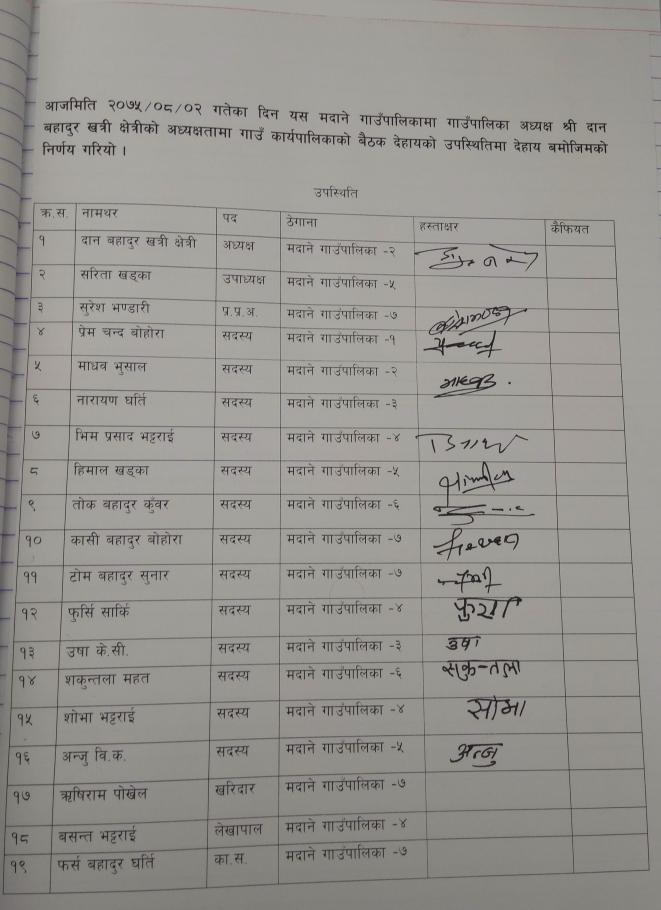 आजमिति २०७५/०८/०२ गतेका दिन यस मदाने गाउँपालिकामा गाउँपालिका अध्यक्ष श्री दान
बहादुर खत्री क्षेत्रीको अध्यक्षतामा गाउँ कार्यपालिकाको बैठक देहायको उपस्थितिमा देहाय बमोजिमको
निर्णय गरियो ।
उपस्थिति
क्र.स. नामथर पद ठेगाना हस्ताक्षर कैफियत
१ दान बहादुर खत्री क्षेत्री अध्यक्ष मदाने गाउँपालिका -२
२ सरिता खड्का उपाध्यक्ष मदाने गाउँपालिका -५
३ सुरेश भण्डारी प्र.प्र.अ. मदाने गाउँपालिका -७
४ प्रेम चन्द बोहोरा सदस्य मदाने गाउँपालिका -१
५ माधव भुसाल सदस्य मदाने गाउँपालिका -२
६ नारायण घर्ति सदस्य मदाने गाउँपालिका -३
७ भिम प्रसाद भट्टराई सदस्य मदाने गाउँपालिका -४
८ हिमाल खड्का सदस्य मदाने गाउँपालिका -५
९ तोक बहादुर कुँवर सदस्य मदाने गाउँपालिका -६
१० कासी बहादुर बोहोरा सदस्य मदाने गाउँपालिका -७
११ टोम बहादुर सुनार सदस्य मदाने गाउँपालिका -७
१२ फुर्सि सार्कि सदस्य मदाने गाउँपालिका -४
१३ उषा के.सी. सदस्य मदाने गाउँपालिका -३ उषा
१४ शकुन्तला महत सदस्य मदाने गाउँपालिका -६ सकुन्तला
१५ शोभा भट्टराई सदस्य मदाने गाउँपालिका -४ सोभा
१६ अन्जु वि.क. सदस्य मदाने गाउँपालिका -५ अन्जु
१७ ऋषिराम पोखेल खरिदार मदाने गाउँपालिका -७
१८ बसन्त भट्टराई लेखापाल मदाने गाउँपालिका -४
१९ फर्स बहादुर घर्ति का.स. मदाने गाउँपालिका -७